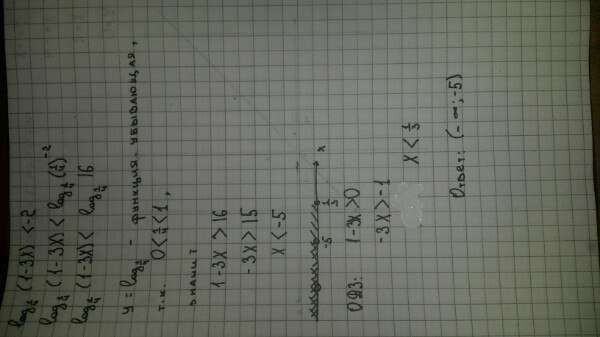 log₁/₄ (1-3x) < -2
log₁/₄ (1-3x) < log₁/₄ (1/4)⁻²
log₁/₄ (1-3x) < log₁/₄ 16
y = log₁/₄ - функция убывающая,
т.к. 0 < 1/4 < 1,
значит
1-3x > 16
-3x > 15
x < -5
-5 1/3 x
ОДЗ: 1-3x > 0
-3x > -1
x < 1/3
Ответ: (-∞; -5)